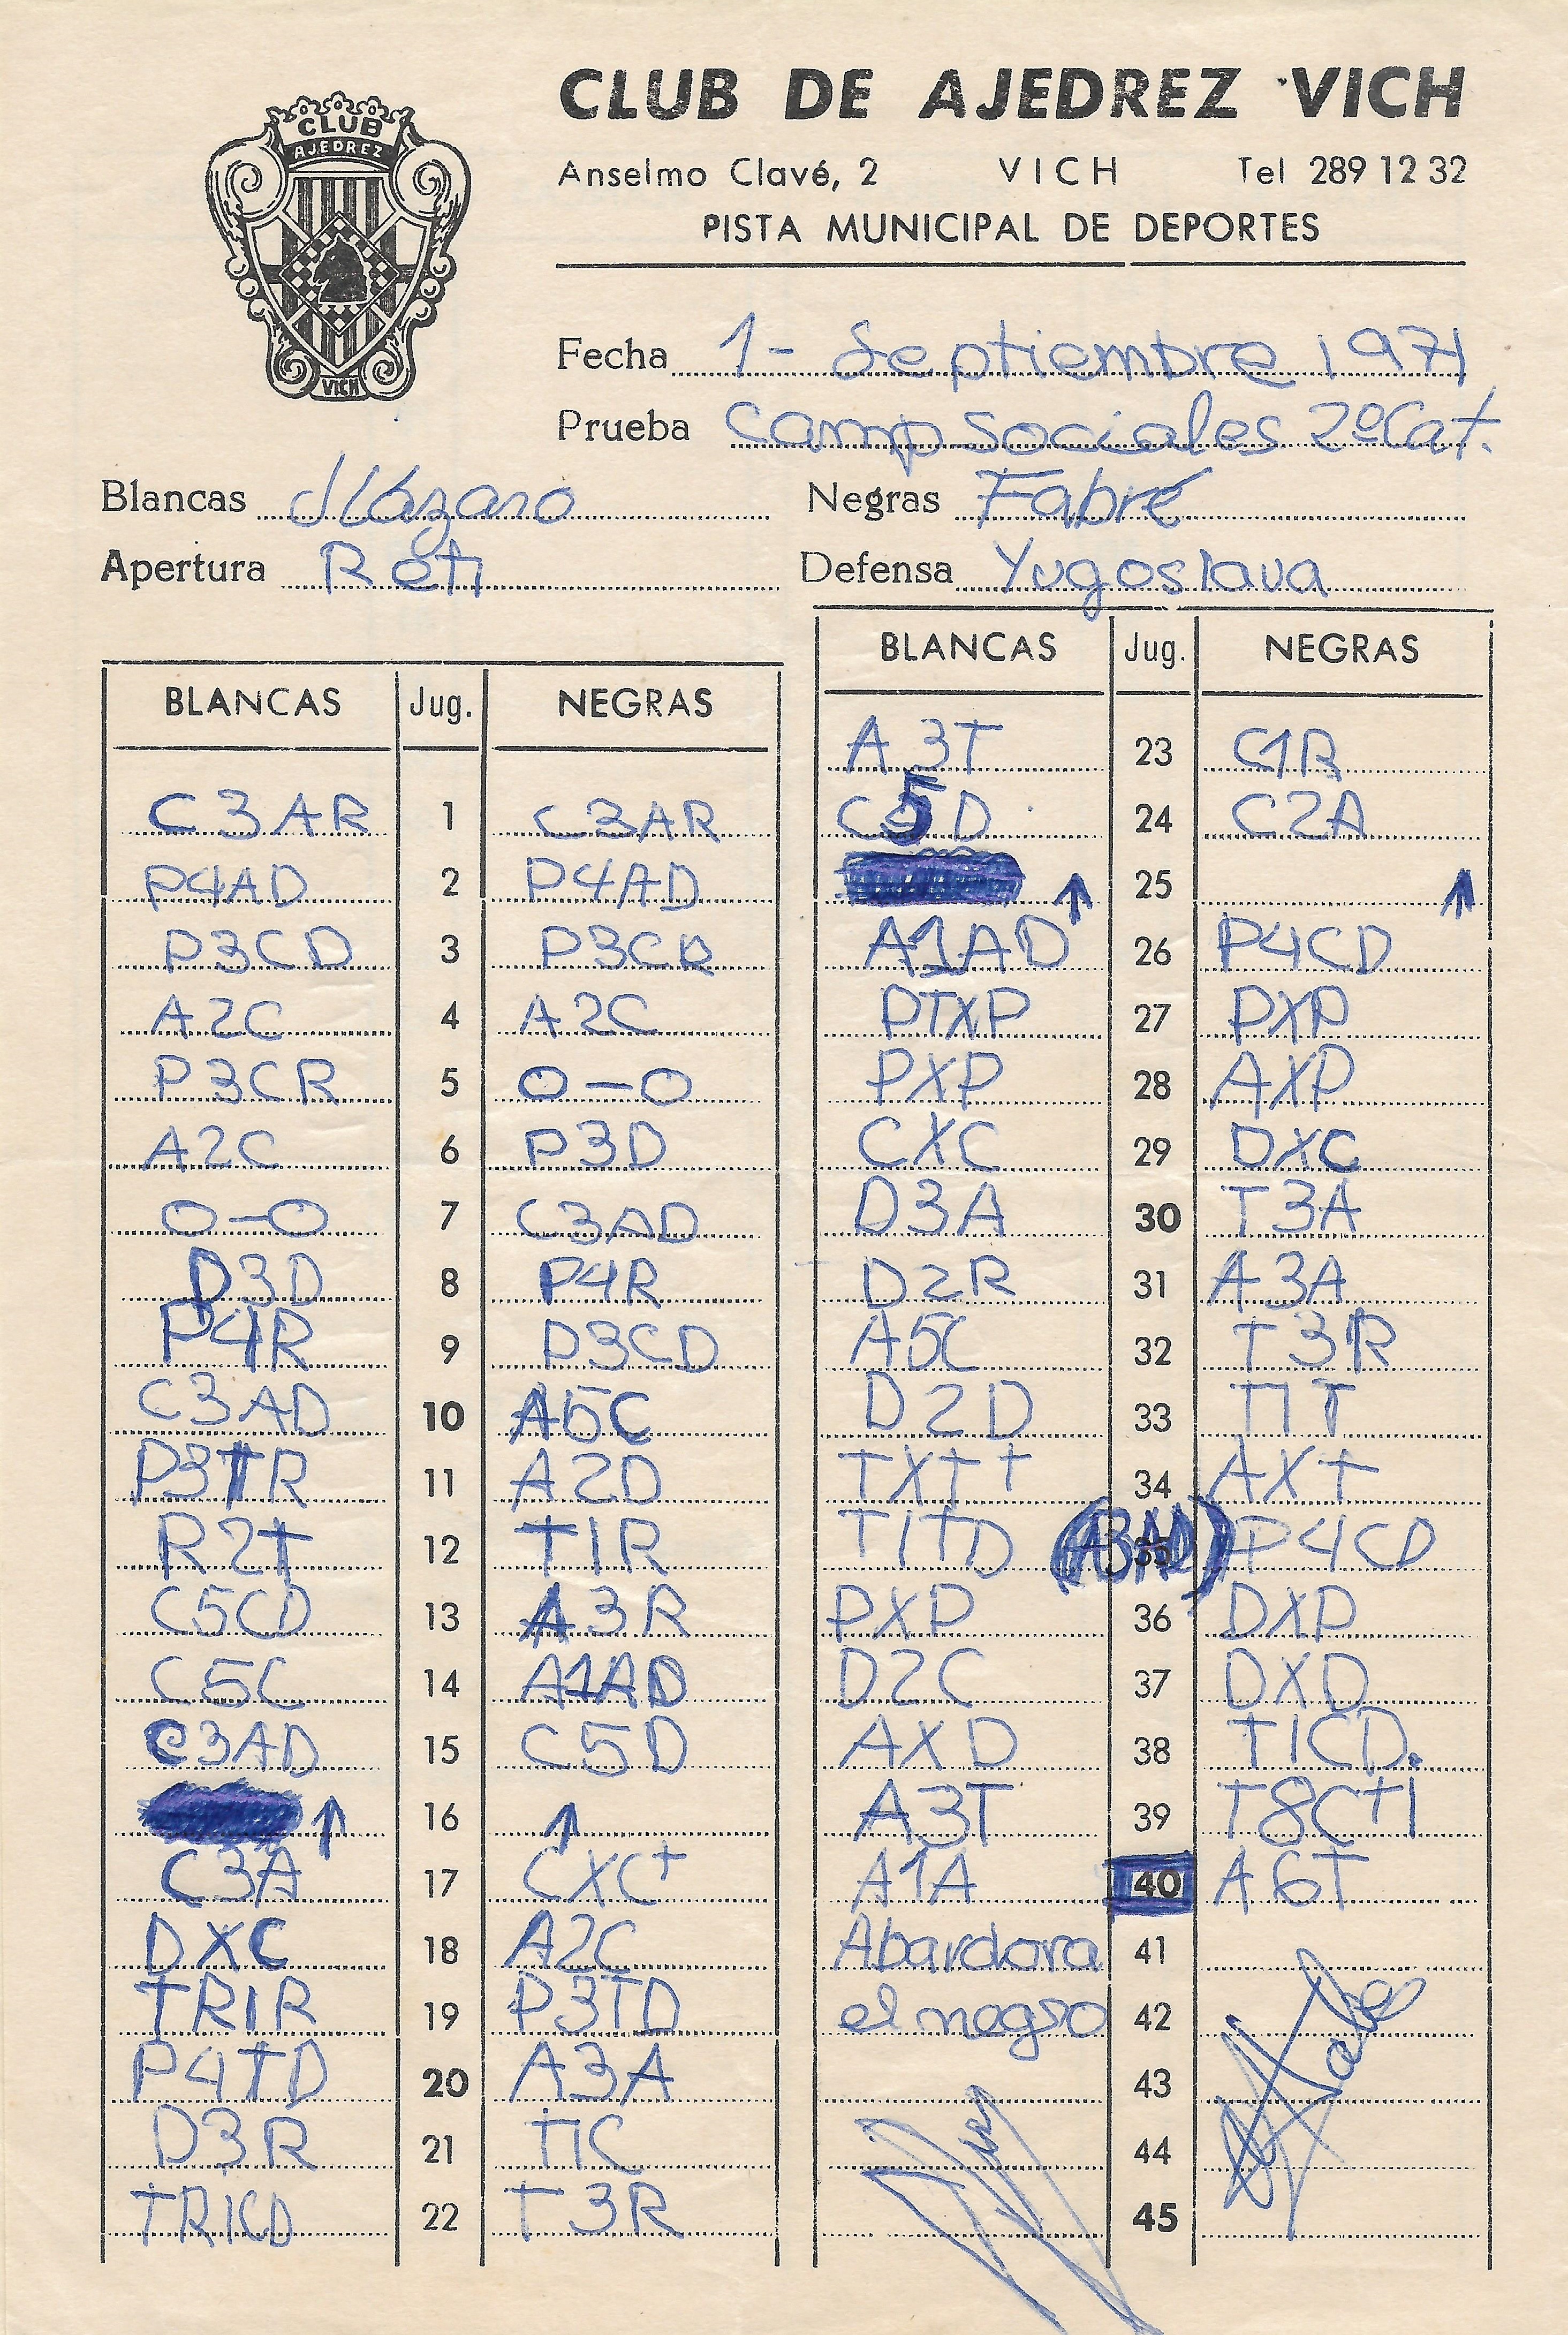 CLUB
AJEDREZ
VICH
CLUB DE AJEDREZ VICH
Anselmo Clavé, 2 VICH Tel 289 12 32
PISTA MUNICIPAL DE DEPORTES
Fecha 1- Septiembre 1971
Prueba Camp sociales 2º Cat.
Blancas Negras Fabré
Apertura Reti Defensa Yugoslava
BLANCAS Jug. NEGRAS
C3AR 1 C3AR
P4AD 2 P4AD
P3CD 3 P3CR
A2C 4 A2C
P3CR 5 O-O
A2C 6 P3D
O-O 7 C3AD
D3D 8 P4R
P4R 9 P3CD
C3AD 10 A5C
P3TR 11 A2D
R2T 12 T1R
C5CD 13 A3R
C5C 14 A1AD
C3AD 15 C5D
16 ↑ ↑
C3A 17 CXC+
DXC 18 A2C
TR1R 19 P3TD
P4TD 20 A3A
D3R 21 T1C
TR1CD 22 T3R
BLANCAS Jug. NEGRAS
A3T 23 C1R
C5D 24 C2A
↑ 25 ↑
A1AD 26 P4CD
PTXP 27 PXP
PXP 28 AXP
CXC 29 DXC
D3A 30 T3A
D2R 31 A3A
A5C 32 T3R
D2D 33 T1T
TXT+ 34 AXT
T1TD (A3AD) 35 P4CD
PXP 36 DXP
D2C 37 DXD
AXD 38 T1CD.
A3T 39 T8C+!
A1A 40 A6T
Abandona 41
el negro 42
43
44
45